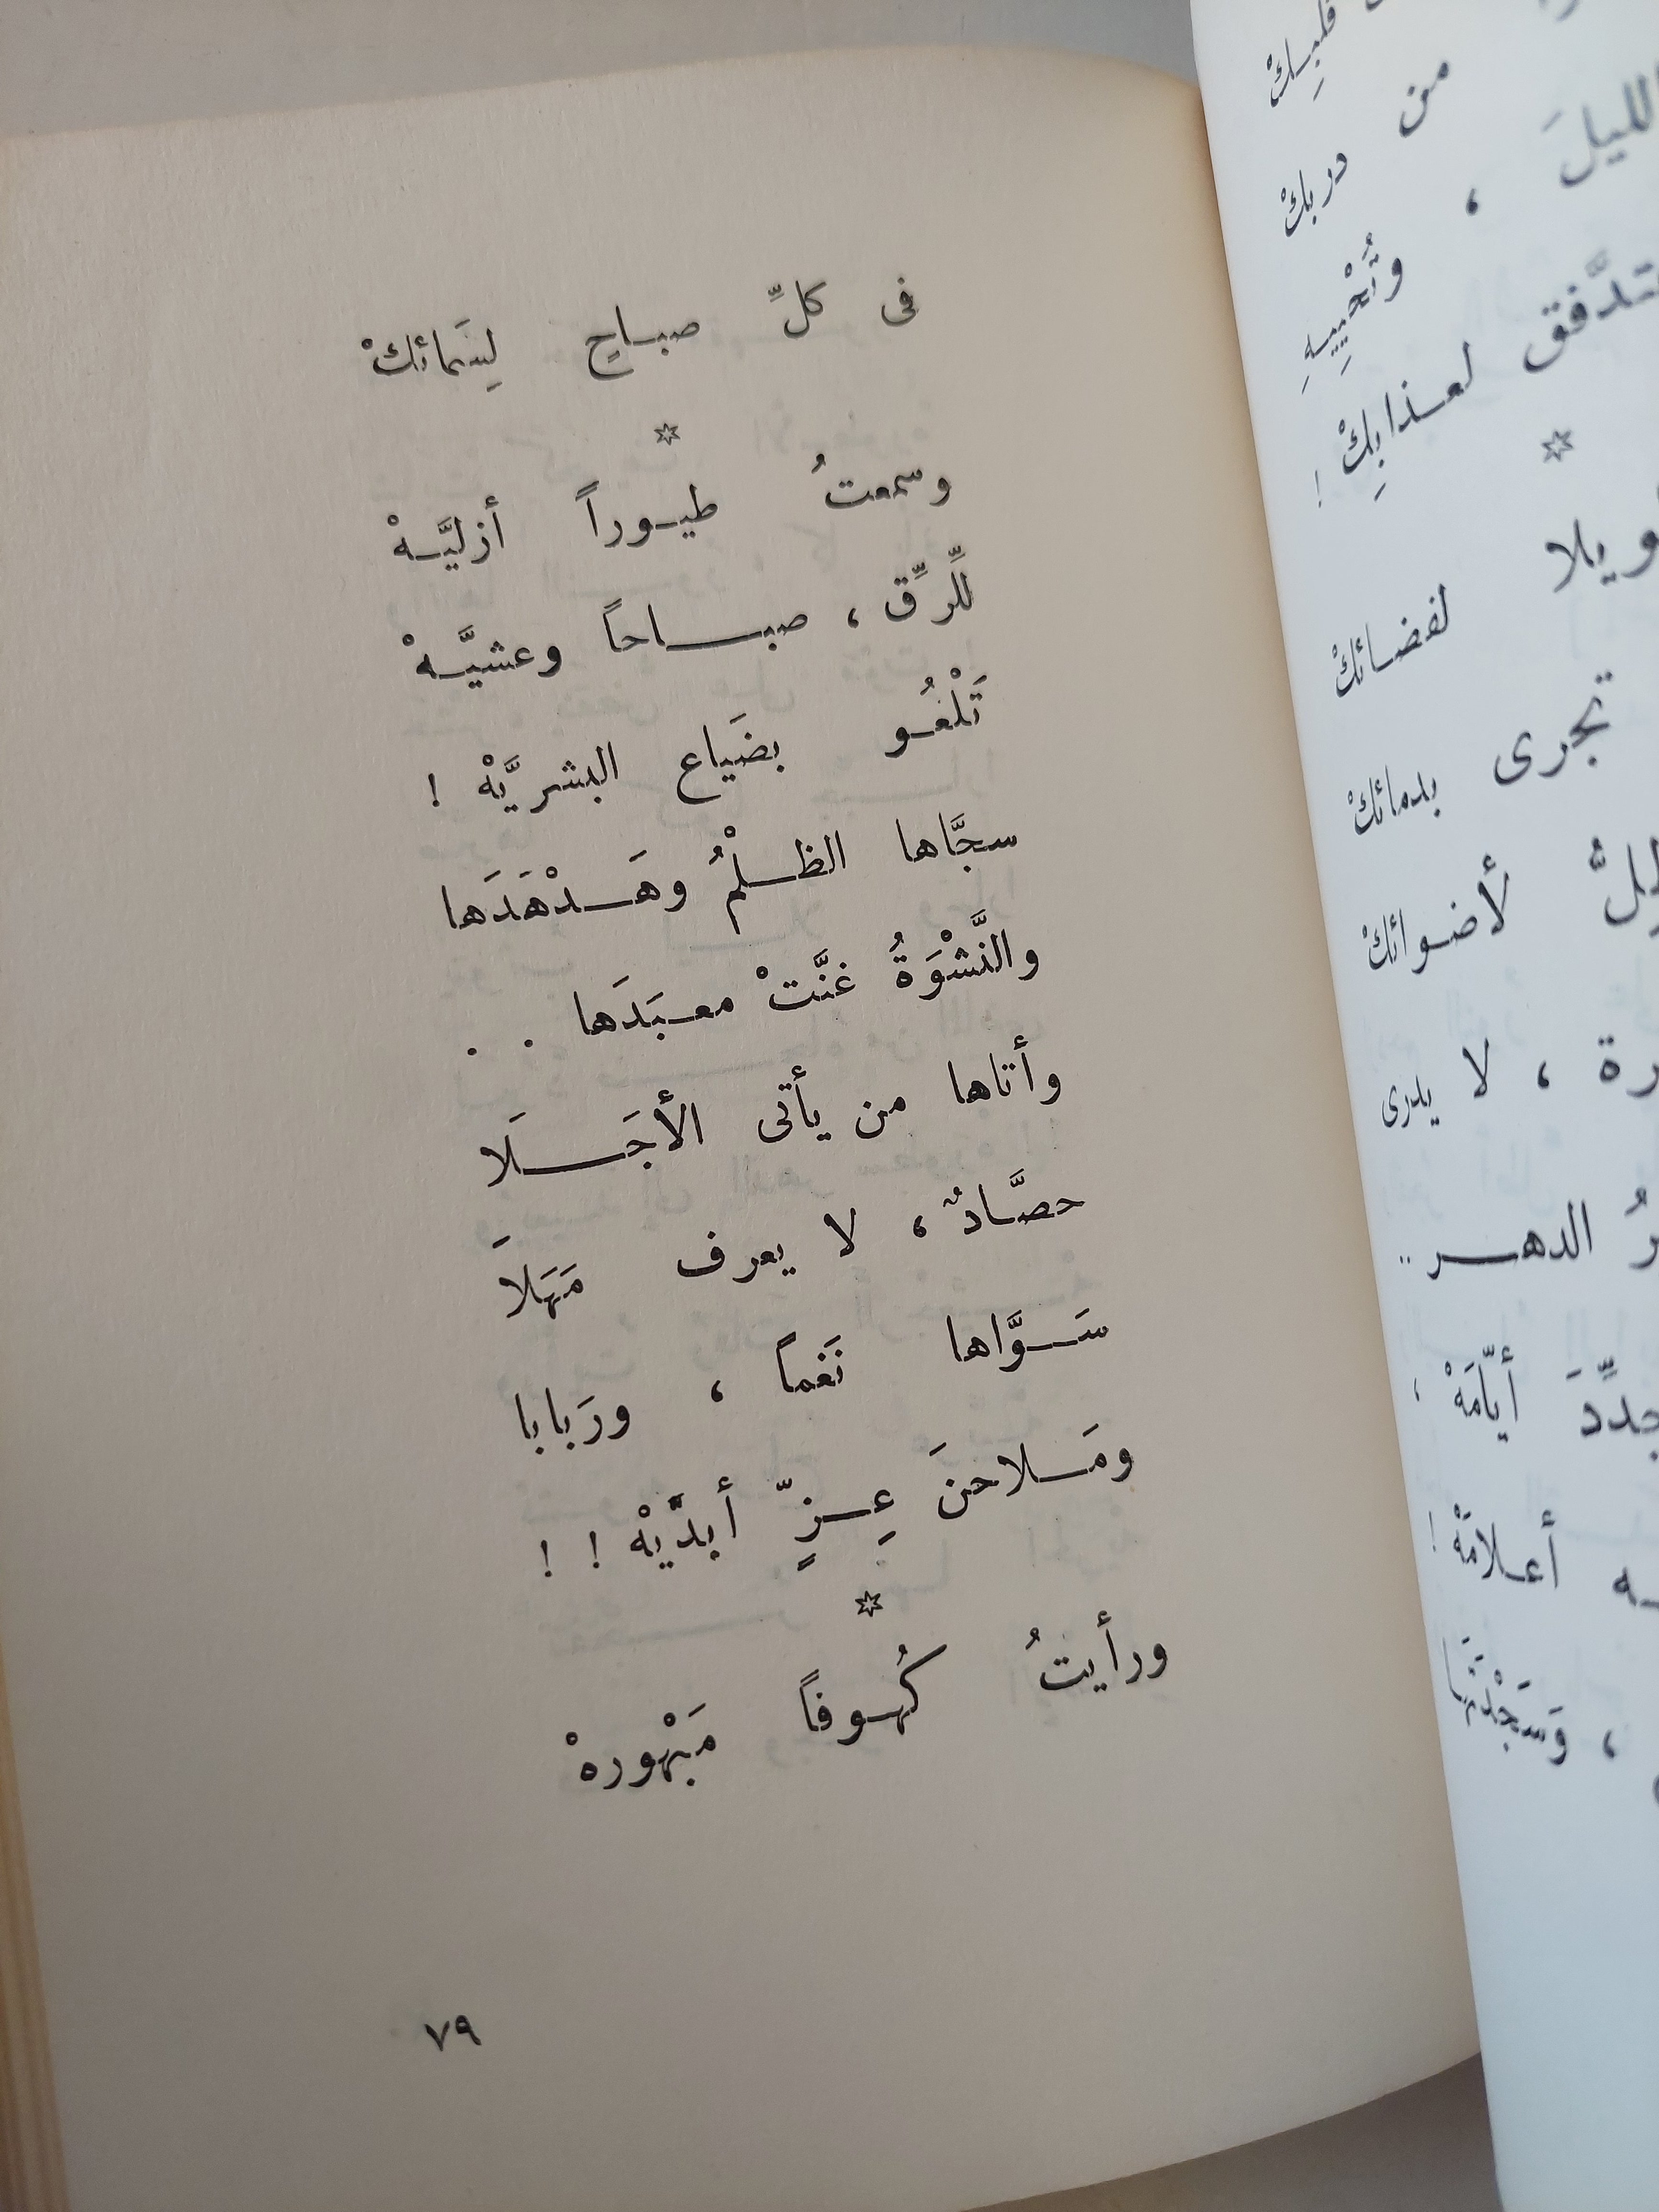 فى كلِّ صباحٍ لِسَمائكْ
وسمعتُ طيـوراً أزليَّـهْ
للرِّقِّ ، صبـاحاً وعشيَّـهْ
تَلْغُـو بضَياع البشريَّهْ !
سجَّاها الظـلْمُ وهَـدْهَدَها
والنَّشْوَةُ غنَّتْ معـبَدَها . .
وأتاها من يأتى الأجَـلَا
حصَّـادٌ ، لا يعرف مَهَلاَ
سَـوَّاها نَغماً ، ورَبابا
ومَـلاحنَ عِـزٍّ أبدَّيهْ ! !
ورأيتُ كُهـوفاً مَبْهورهْ
٧٩
قلبِكْ
من دربكْ
الليلَ ، وتُحْيِيهِ
تتدَّفق لعـذابِكْ !
لفضائكْ
تجرى بدمائكْ
لأضوائكْ
، لا يدرى
الدهـر ..
أيّامَهْ ،
أعـلامَهْ !